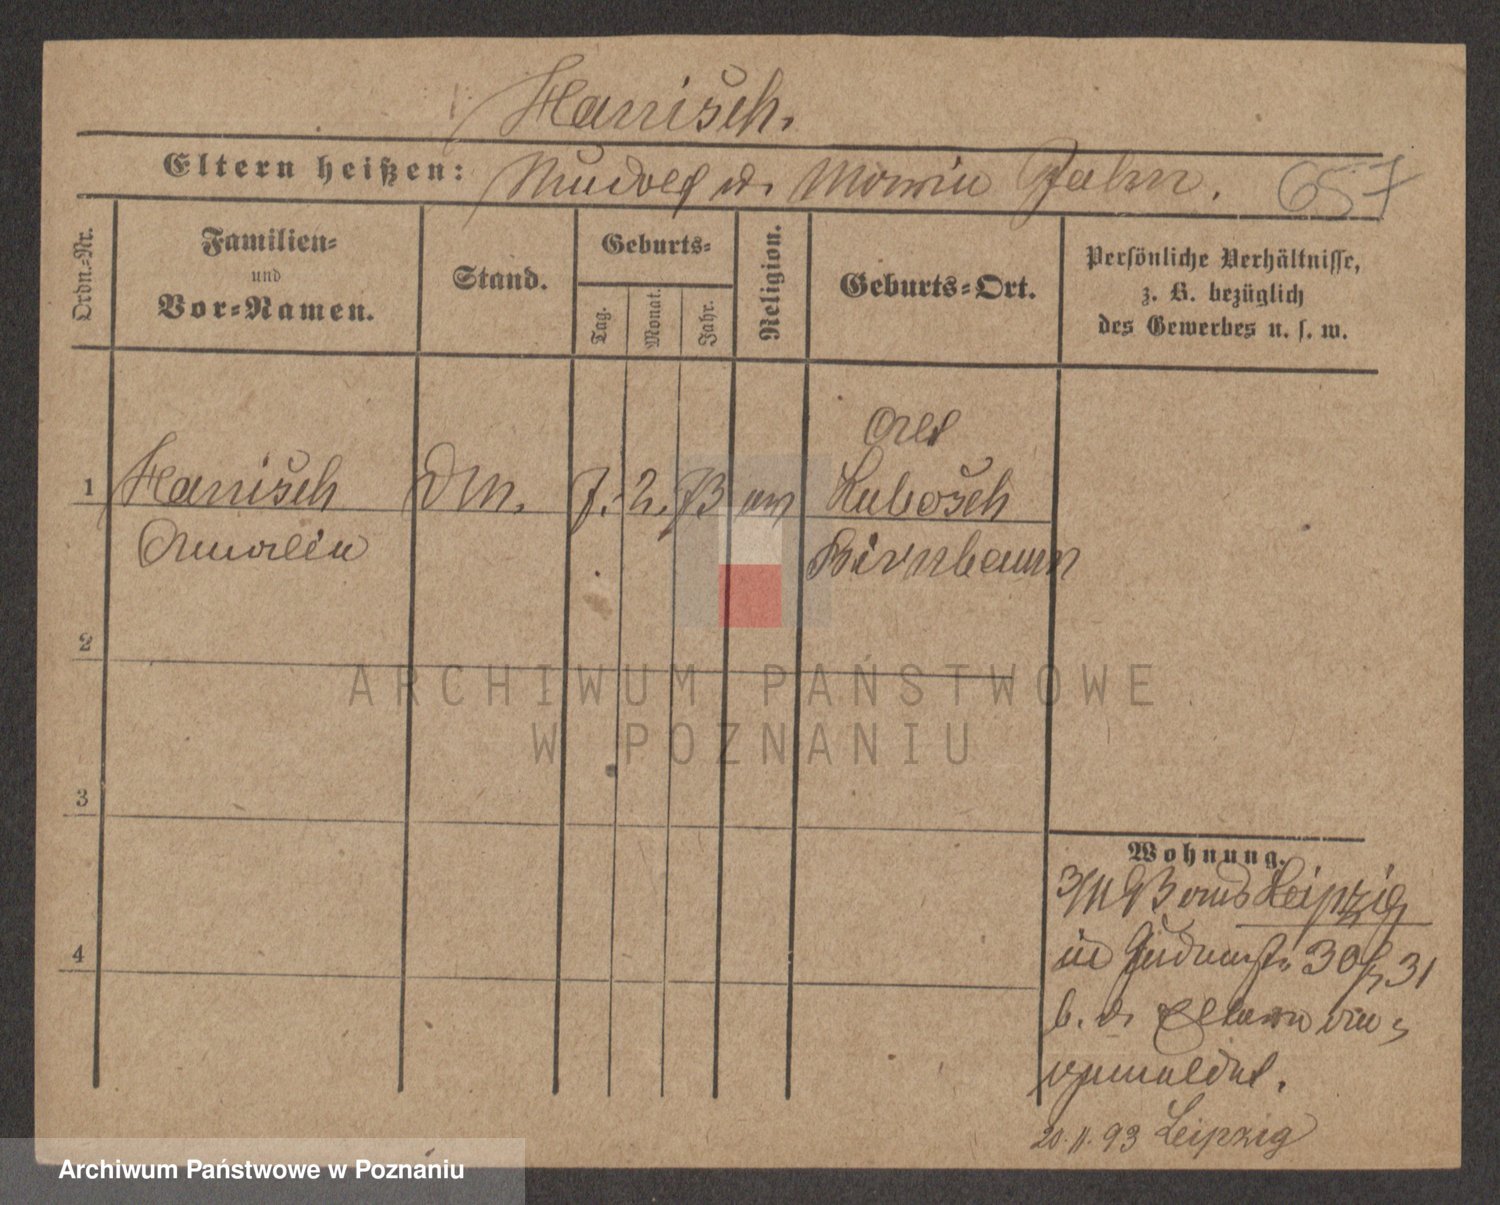 Hanisch.
Eltern heißen: Rudolf u. Maria Jahn. 657
Ordn.-Nr.
Familien-
und
Vor-Namen.
Stand.
Geburts-
Tag.
Monat.
Jahr.
Religion.
Geburts-Ort.
Persönliche Verhältnisse,
z. B. bezüglich
des Gewerbes u. s. w.
Alt
1 Hanisch 7. 2. 73 ev Lubosch
Amalie Birnbaum
2
3
4
Wohnung.
93 aus Leipzig
in 30/31
b. d. Eltern an-
gemeldet.
20.11.93 Leipzig
ARCHIWUM PAŃSTWOWE
W POZNANIU
Archiwum Państwowe w Poznaniu